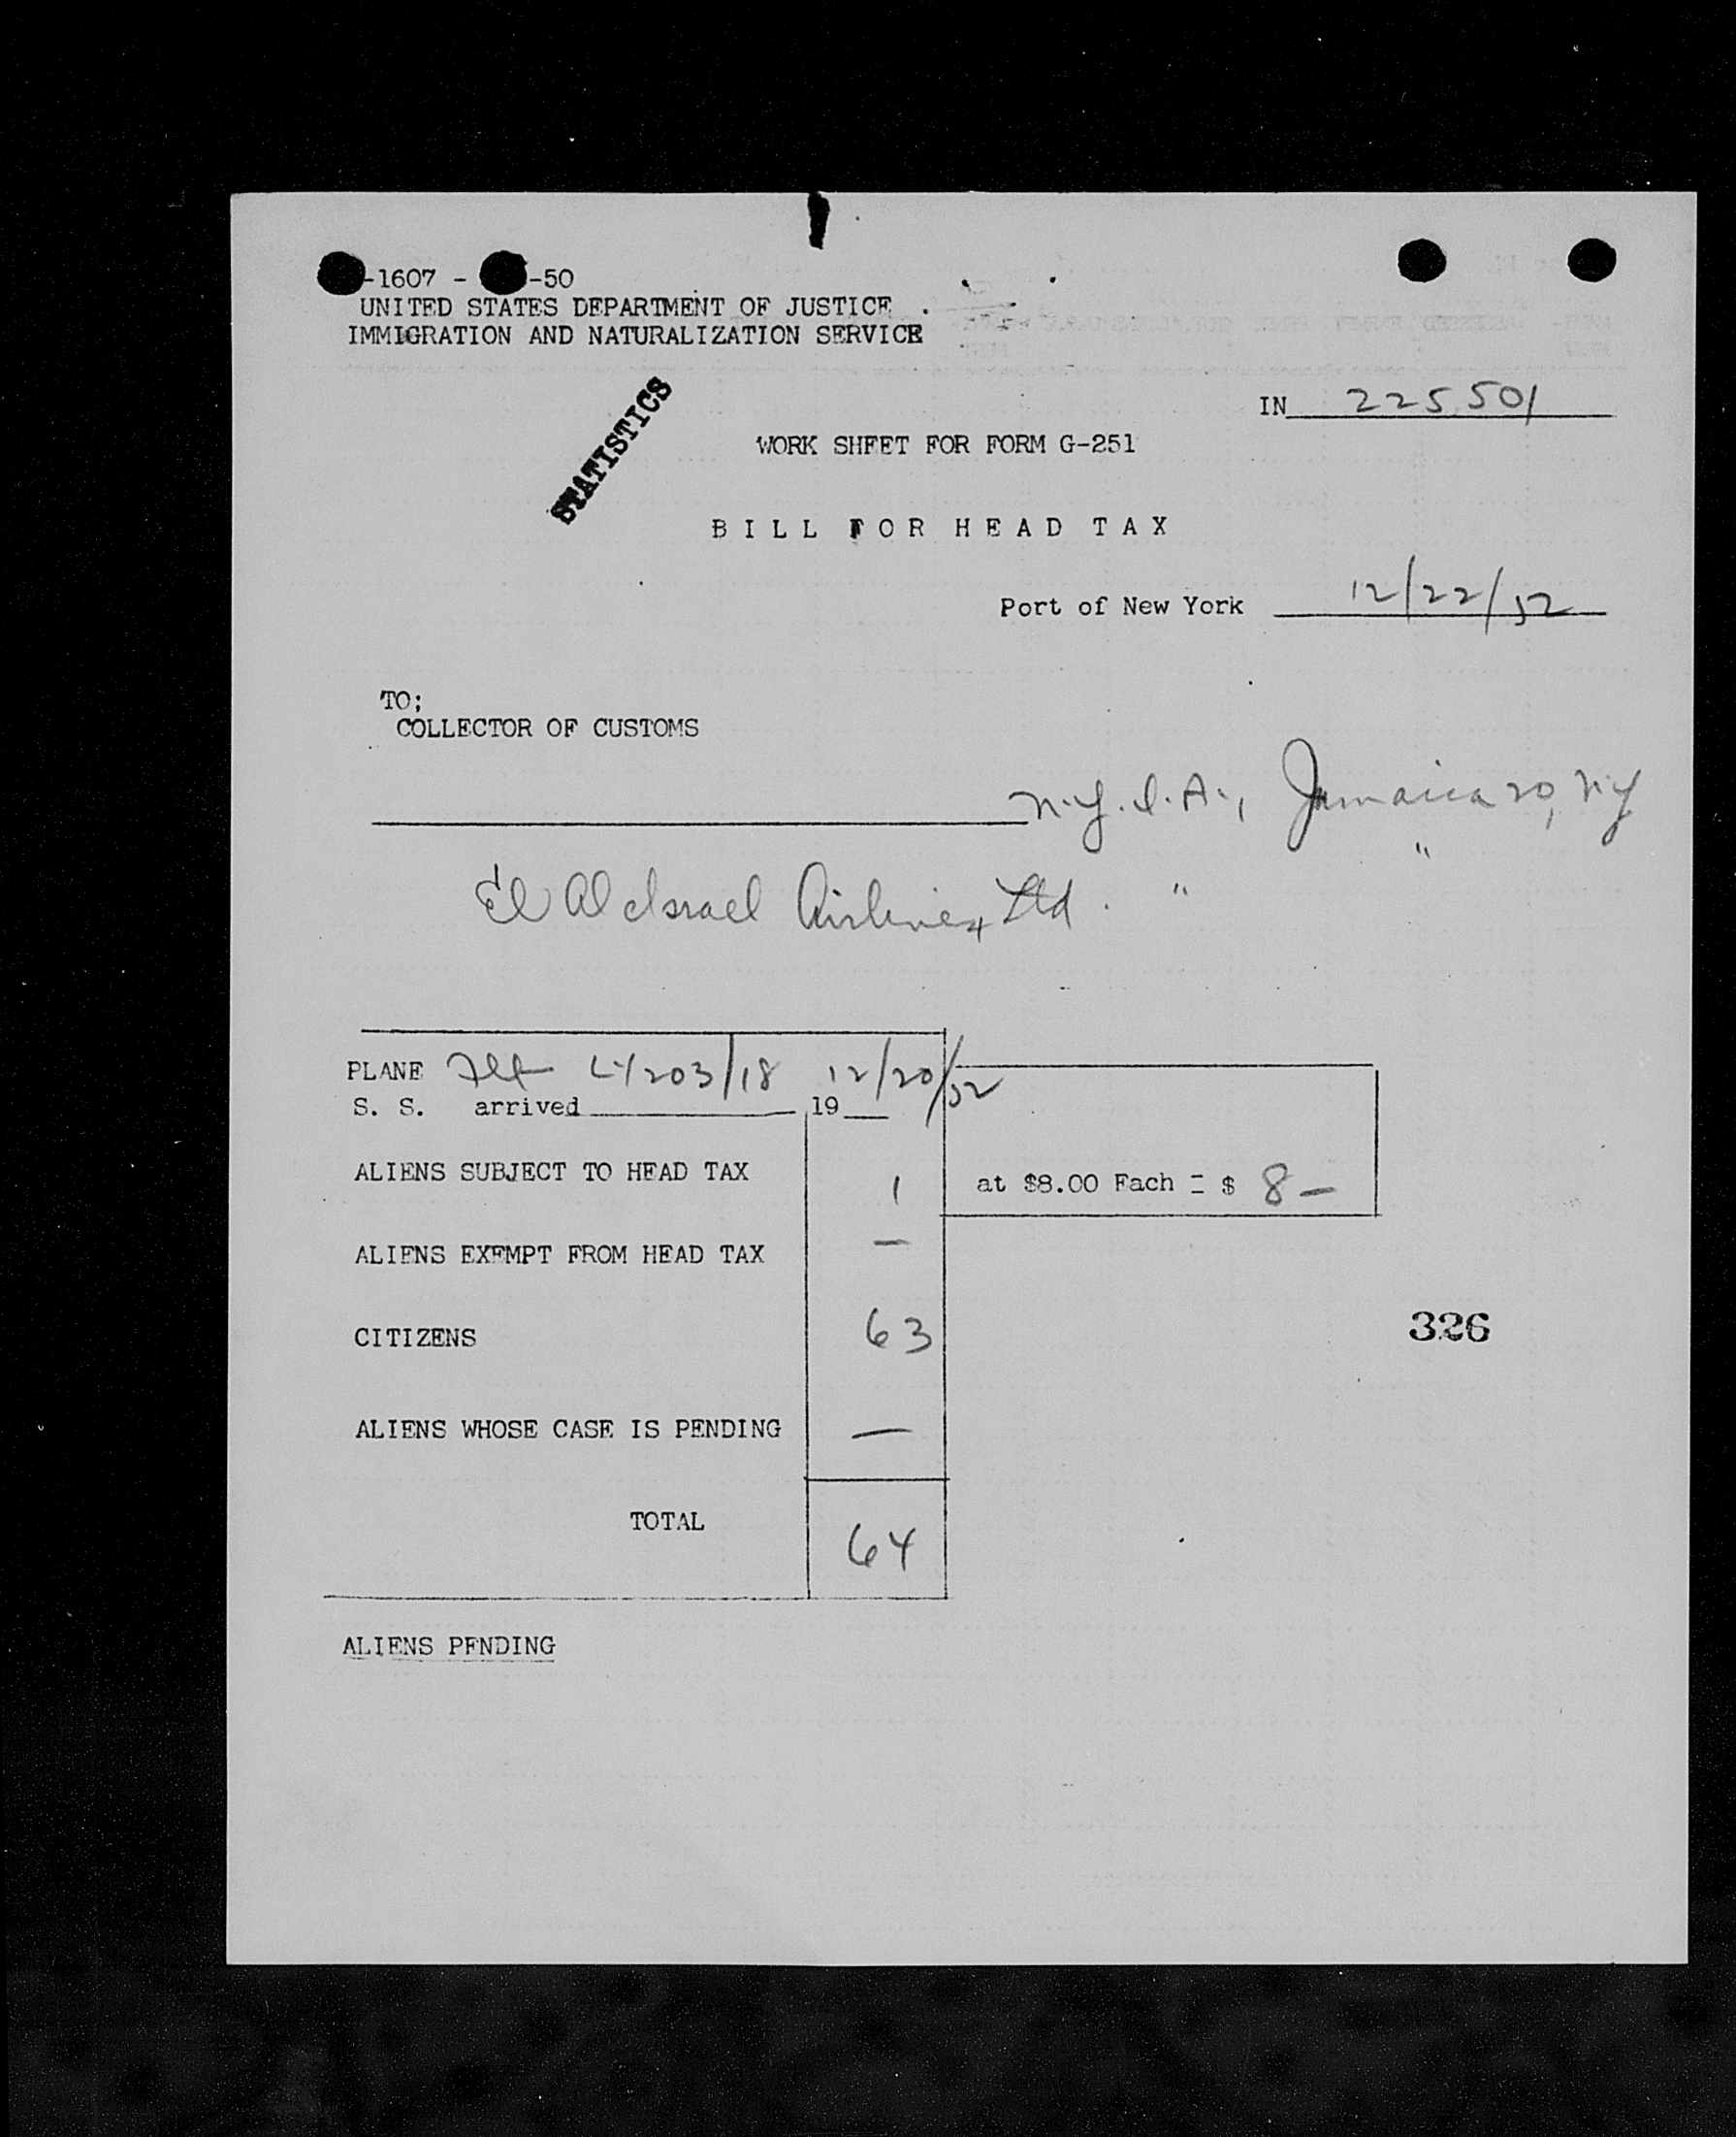 -1607 - -50
UNITED STATES DEPARTMENT OF JUSTICE
IMMIGRATION AND NATURALIZATION SERVICE
STATISTICS
IN 225501
WORK SHEET FOR FORM G-251
BILL FOR HEAD TAX
Port of New York 12/22/52
TO;
COLLECTOR OF CUSTOMS
N.Y.I.A., Jamaica 20, N.Y
El Al Israel Airlines Ltd. " "
PLANE Flt LY203/18 12/20/52
S. S. arrived 19
ALIENS SUBJECT TO HEAD TAX 1 at $8.00 Each = $ 8 —
ALIENS EXEMPT FROM HEAD TAX —
CITIZENS 63
326
ALIENS WHOSE CASE IS PENDING —
TOTAL 64
ALIENS PENDING